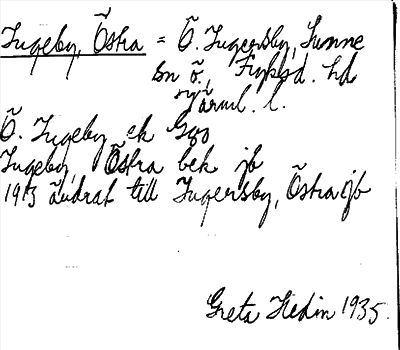 Ingeby, Östra = Ö. Ingersby, Sunne
sn ö., Fryksd. hd
Värml. l.
Ö. Ingeby ek G90
Ingeby, Östra bek jb
1913 ändrat till Ingersby, Östra jb
Greta Hedin 1935.